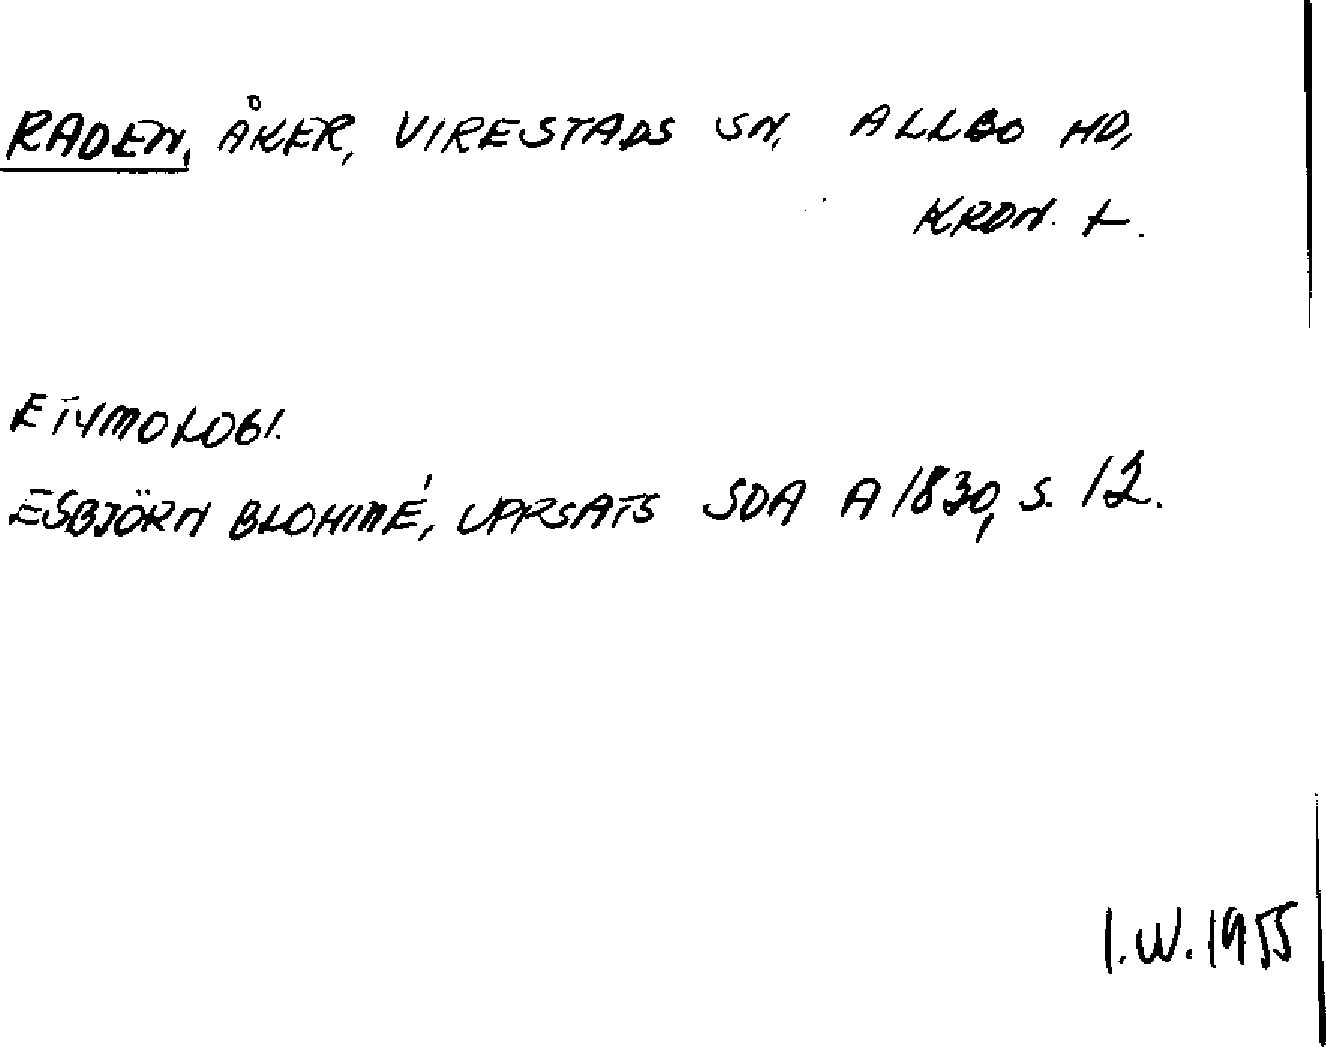 RADEN, ÅKER, VIRESTADS SN, ALLBO HD,
KRON. L.
ETYMOLOGI.
ESBJÖRN BLOHMÉ, UPPSATS SOA A 1830, S. 12.
I.W. 1955